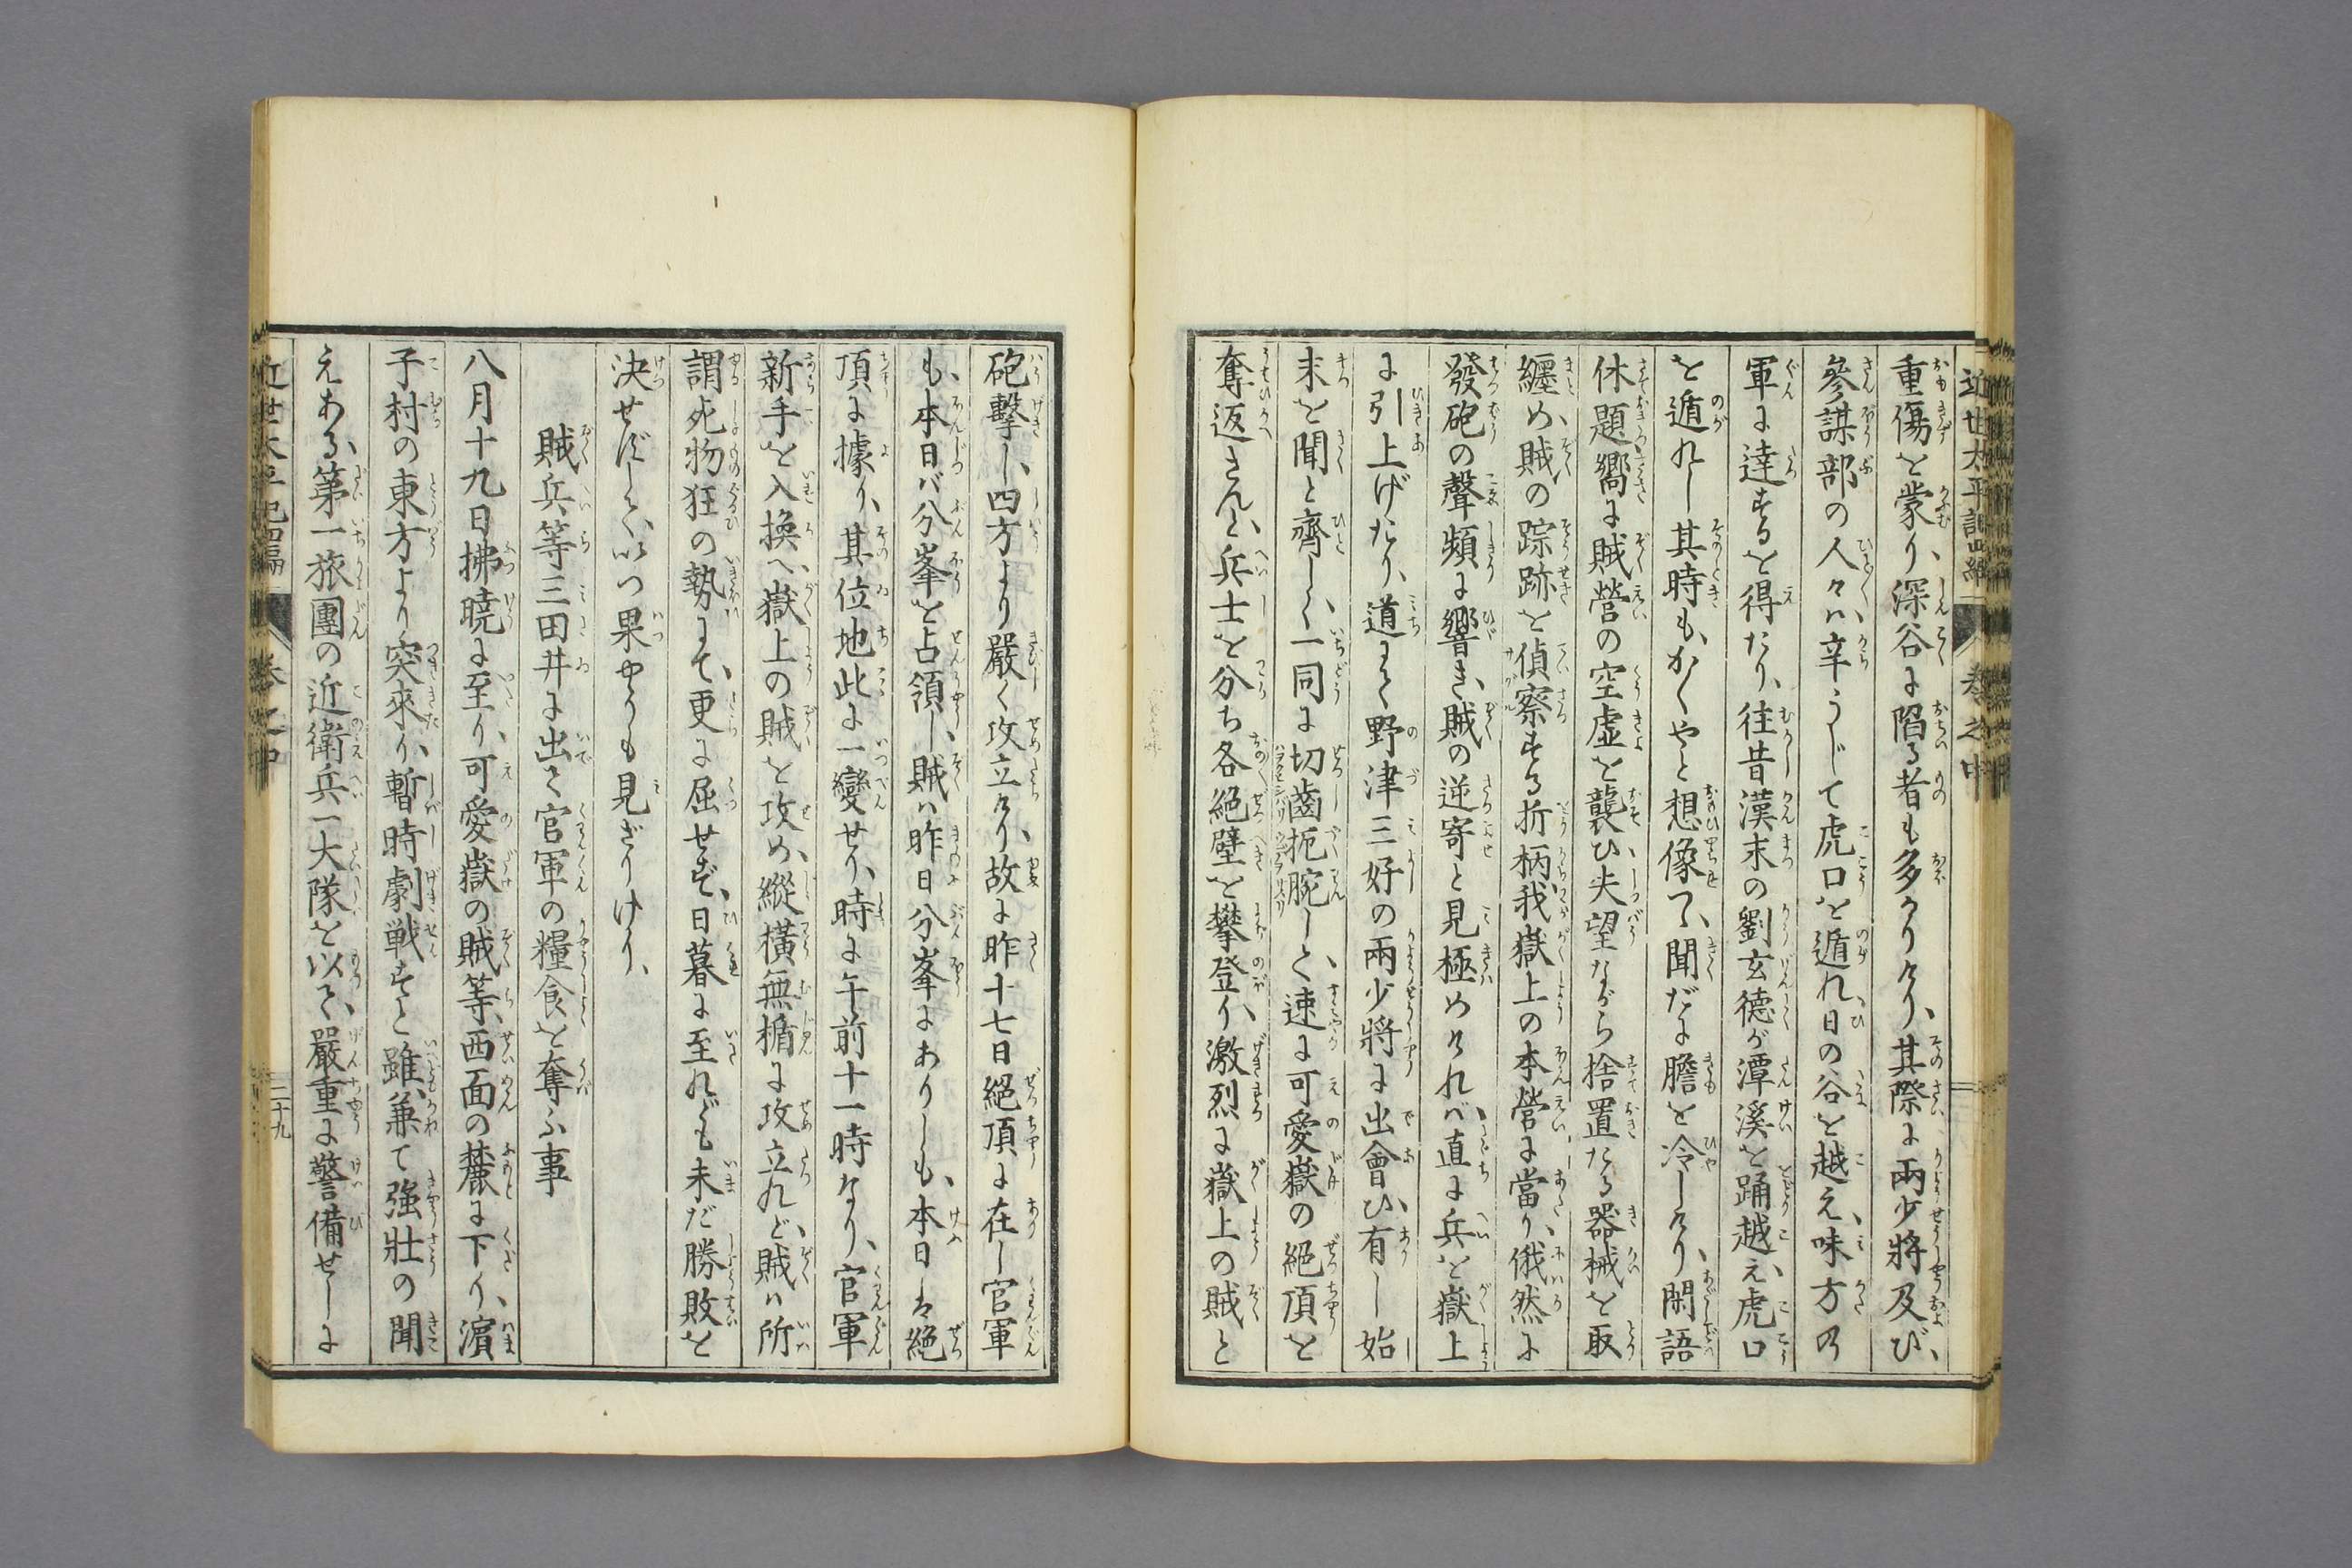 近世太平記四編 卷之中
重傷を蒙り、深谷に陷る者も多かりけり、其際に兩少將及び、
參謀部の人々ハ、辛うじて虎口を遁れ、日の谷を越え、味方の
軍に達するを得たり、往昔漢末の劉玄德が潭溪を踊越え、虎口
を遁れし其時も、かくやと想像て、聞だに膽を冷しけり、閑語
休題、嚮に賊營の空虚を襲ひ、失望ながら捨置たる器械を取
纏め、賊の踪跡を偵察する折柄、我嶽上の本營に當り、俄然に
發砲の聲頻に響き、賊の逆寄と見極めけれバ、直に兵を嶽上
に引上げたり、道にて野津三好の兩少將に出會ひ、有し始
末を聞と齊しく、一同に切齒扼腕しく、速に可愛嶽の絕頂を
奪返さんと、兵士を分ち各絕壁を攀登り、激烈に嶽上の賊と
砲擊し、四方より嚴く攻立けり、故に昨十七日絕頂に在し官軍
も、本日バ分峯を占領し、賊ハ昨日分峯にありしも、本日ハ絕
頂に據り、其位地此に一變せり、時に午前十一時なり、官軍
新手を入換へ、嶽上の賊を攻め、縱橫無楯に攻立れど、賊ハ所
謂死物狂の勢にて、更に屈せず、日暮に至れども未だ勝敗を
決せずして、いつ果やうも見ざりけり、
賊兵等三田井に出て官軍の糧食を奪ふ事
八月十九日拂曉に至り、可愛嶽の賊等、西面の麓に下り、濵
子村の東方より突來り、暫時劇戰すと雖、兼て強壯の聞
えある、第一旅團の近衛兵一大隊を以て、嚴重に警備せしに
近世太平記四編 卷之中 二十九